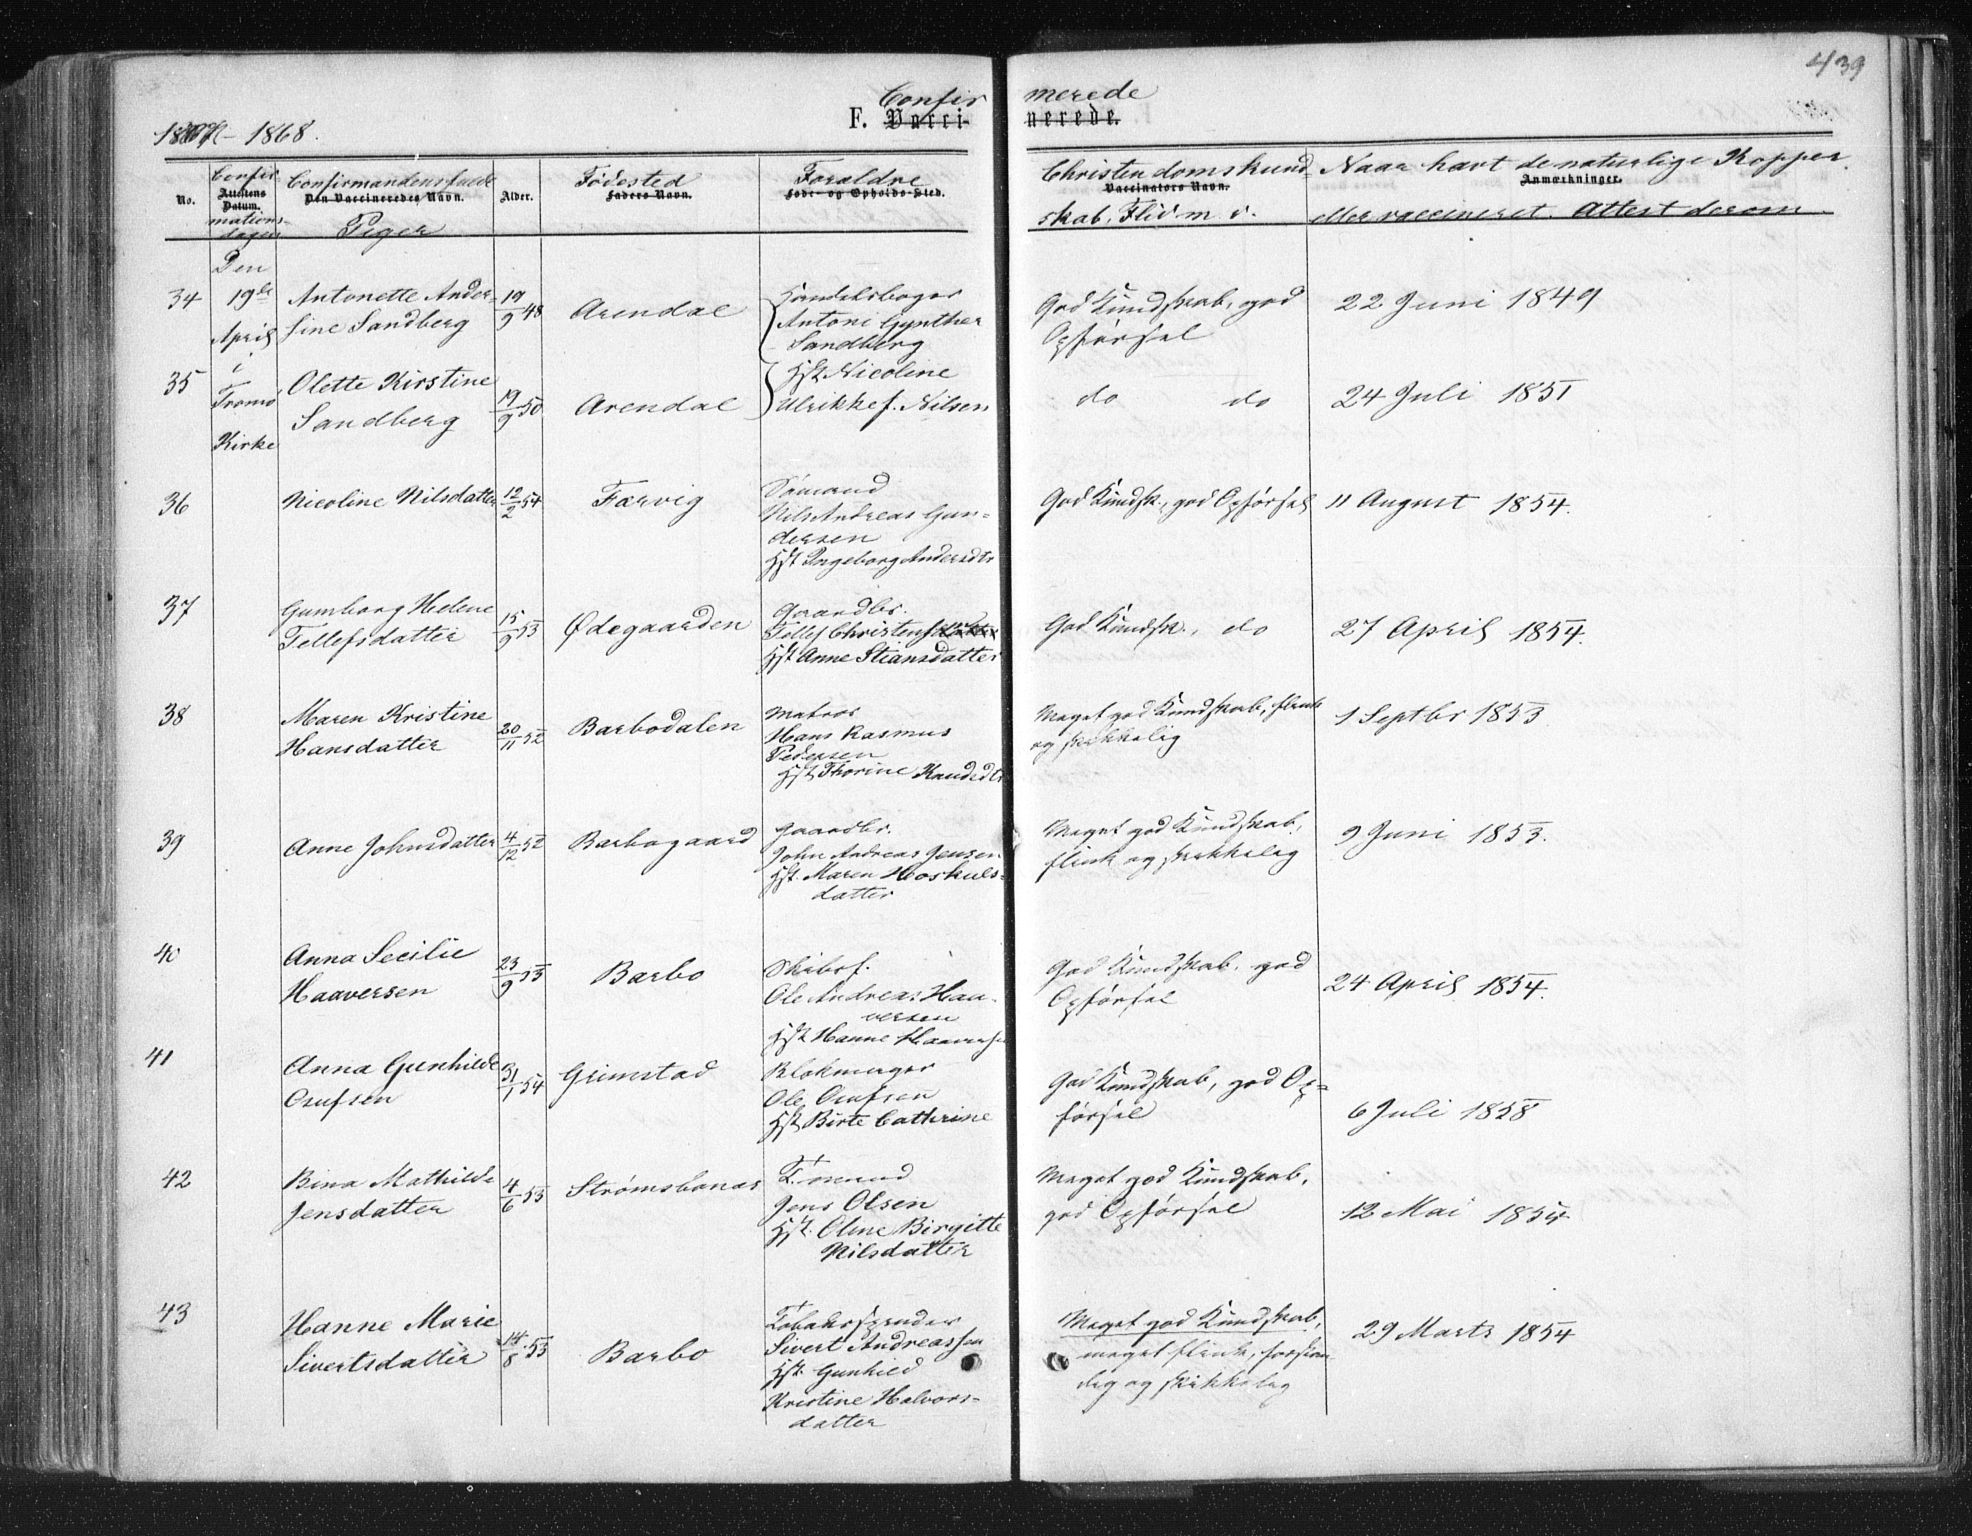 439
1868.
Confir merede
F. Vacci- nerede.
No.
Confir
Attestens Datum.
mations-
dagen
Confirmandens fulde
Den Vaccineredes Navn.
Piger
Alder.
Fødested
Faders Navn.
Forældre
Føde- og Opholds-Sted.
Christendomskund
Vaccinators Navn.
skab, Flid m. v.
Naar havt de naturlige Kopper
Anmærkninger.
eller vaccineret. Attest derom
Den
19de
April
i
Tromø
Kirke
34
Antonette Ander-
sine Sandberg
19/9 48
Arendal
Handelsborger
Antoni Gynther
Sandberg
God Kundskab, god
Opførsel
22 Juni 1849
35
Olette Kirstine
Sandberg
19/9 50
Arendal
Hst. Nicoline
Ulrikke f. Nilsen
do do
24 Juli 1851
36
Nicoline Nilsdatter
12/2 54
Færvig
Sømand
Nils Andreas Gun-
dersen
Hst Ingeborg Andersdtr
God Kundsk., god Opførsel
11 August 1854.
37
Gumborg Helene
Tellefsdatter
15/9 53
Ødegaarden
Gaardbr.
Tellef Christens
Hst Anne Stiansdatter
God Kundsk., do
27 April 1854.
38
Maren Kristine
Hansdatter
20/11 52
Barbodalen
Matros
Hans Rasmus
Pedersen
Hst Thorine Knudsdtr
Meget god Kundskab, flink
og skikkelig
1 Septbr 1853
39
Anne Johnsdatter
4/12 52
Barbogaard
Gaardbr.
John Andreas Jensen
Hst. Maren Hoskuls-
datter
Meget god Kundskab,
flink og skikkelig
9 Juni 1853.
40
Anna Secilie
Haaversen
23/9 53
Barbo
Skibsf.
Ole Andreas Haa-
versen
Hst Hanne Haaversen
God Kundskab, god
Opførsel
24 April 1854.
41
Anna Gunhilde
Olufsen
31/1 54
Grimstad
Blokmager
Ole Olufsen
Hst Birte Cathrine
God Kundskab, god Op-
førsel
6 Juli 1858
42
Bina Mathilde
Jensdatter
4/6 53
Strømsbonas
Sømand
Jens Olsen
Hst. Oline Birgitte
Nilsdatter
Meget god Kundskab,
god Opførsel
12 Mai 1854
43
Hanne Marie
Sivertsdatter
14/8 53
Barbo
Tobaksspinder
Sivert Andreassen
Hst. Gunhild
Kristine Halvors-
datter
Meget god Kundskab,
meget flink, forstan-
dig og skikkelig
29 Marts 1854